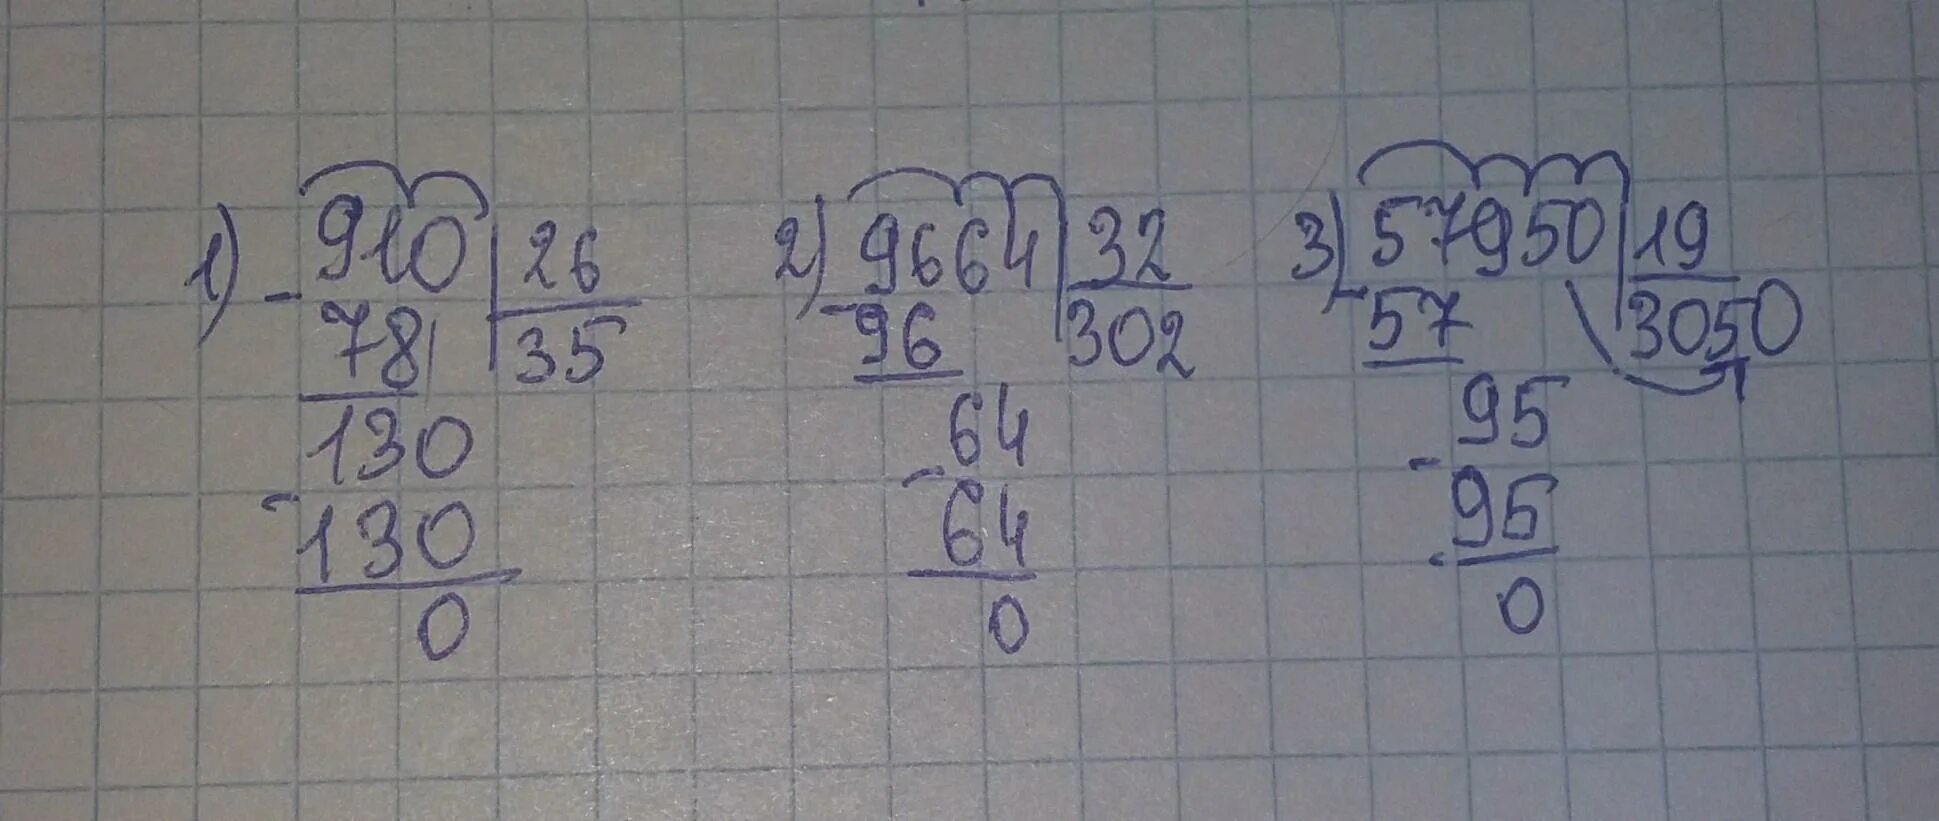 1) 910 | 26
- 78 | 35
130
- 130
0
2) 9664 | 32
- 96 | 302
64
- 64
0
3) 57950 | 19
- 57 | 3050
95
- 95
0